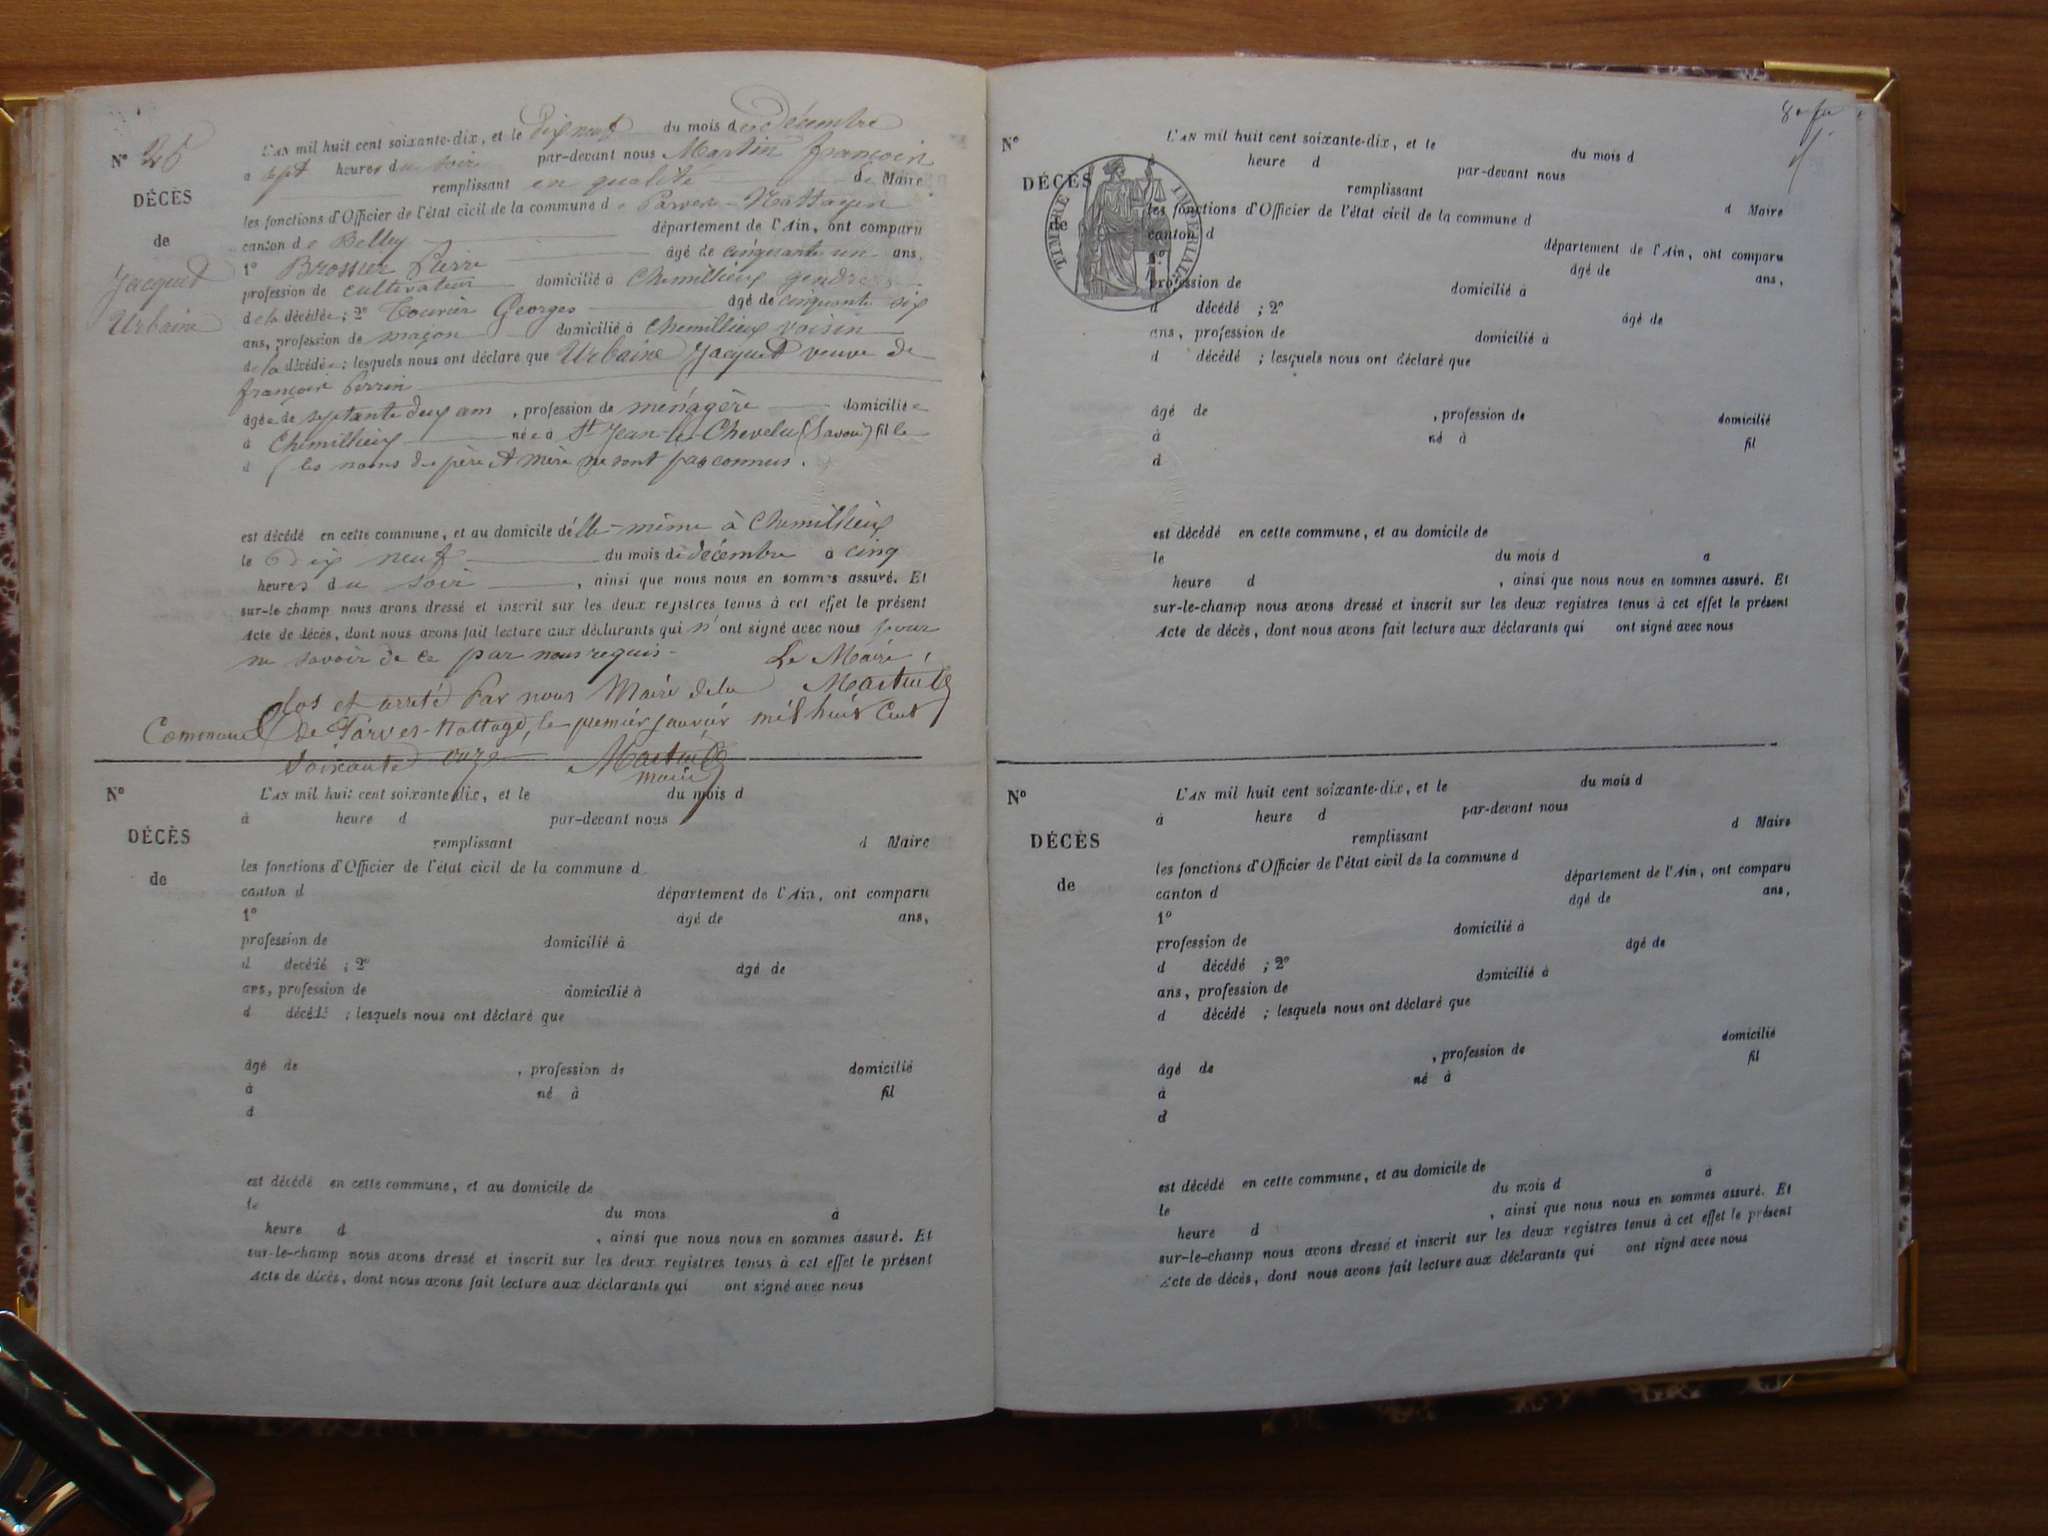 N° 26
DÉCÈS
de
Jacquet
Urbaine
L'AN mil huit cent soixante-dix, et le Dix neuf du mois de Décembre
à sept heures du soir par-devant nous Martin françois
remplissant en qualité de Maire
les fonctions d'Officier de l'état civil de la commune de Parves-Nattages
canton de Belley département de l'Ain, ont comparu
1° Brossier Pierre âgé de cinquante un ans,
profession de cultivateur domicilié à Chemillieux gendre
de la décédée; 2° Tournier Georges âgé de cinquante six
ans, profession de maçon domicilié à Chemillieux voisin
de la décédée; lesquels nous ont déclaré que Urbaine Jacquet veuve de
françois Perrin
âgée de septante deux ans, profession de ménagère domiciliée
à Chemillieux née à St Jean-le-Chevelu (Savoie) fille
d (les noms des père et mère ne sont pas connus.
est décédé en cette commune, et au domicile d'elle-même à Chemillieux
le Dix neuf du mois de décembre à cinq
heures du soir, ainsi que nous nous en sommes assuré. Et
sur-le champ nous avons dressé et inscrit sur les deux registres tenus à cet effet le présent
Acte de décès, dont nous avons fait lecture aux déclarants qui n'ont signé avec nous pour
ne savoir de ce par nous requis. Le Maire,
Clos et arrêté Par nous Maire de la Martin
Commune de Parves-Nattage, le premier janvier mil huit Cent
Soixante onze Martin
maire
N°
DÉCÈS
de
L'AN mil huit cent soixante dix, et le du mois d
à heure d par-devant nous
remplissant d Maire
les fonctions d'Officier de l'état civil de la commune d
canton d département de l'Ain, ont comparu
1° âgé de ans,
profession de domicilié à
d décédé ; 2° âgé de
ans, profession de domicilié à
d décédé ; lesquels nous ont déclaré que
âgé de , profession de domicilié
à né à fil
d
est décédé en cette commune, et au domicile de
le du mois à
heure d , ainsi que nous nous en sommes assuré. Et
sur-le-champ nous avons dressé et inscrit sur les deux registres tenus à cet effet le présent
Acte de décès, dont nous avons fait lecture aux déclarants qui ont signé avec nous
N°
DÉCÈS
de
TIMBRE IMPERIAL
L'AN mil huit cent soixante-dix, et le du mois d
heure d par-devant nous
remplissant d Maire
les fonctions d'Officier de l'état civil de la commune d
canton d département de l'Ain, ont comparu
1° âgé de ans,
profession de domicilié à
d décédé ; 2° âgé de
ans, profession de domicilié à
d décédé ; lesquels nous ont déclaré que
âgé de , profession de domicilié
à né à fil
d
est décédé en cette commune, et au domicile de
le du mois d à
heure d , ainsi que nous nous en sommes assuré. Et
sur-le-champ nous avons dressé et inscrit sur les deux registres tenus à cet effet le présent
Acte de décès, dont nous avons fait lecture aux déclarants qui ont signé avec nous
N°
DÉCÈS
de
L'AN mil huit cent soixante-dix, et le du mois d
à heure d par-devant nous
remplissant d Maire
les fonctions d'Officier de l'état civil de la commune d
canton d département de l'Ain, ont comparu
1° âgé de ans,
profession de domicilié à
d décédé ; 2° âgé de
ans, profession de domicilié à
d décédé ; lesquels nous ont déclaré que
âgé de , profession de domicilié
à né à fil
d
est décédé en cette commune, et au domicile de
le du mois d à
heure d , ainsi que nous nous en sommes assuré. Et
sur-le-champ nous avons dressé et inscrit sur les deux registres tenus à cet effet le présent
Acte de décès, dont nous avons fait lecture aux déclarants qui ont signé avec nous